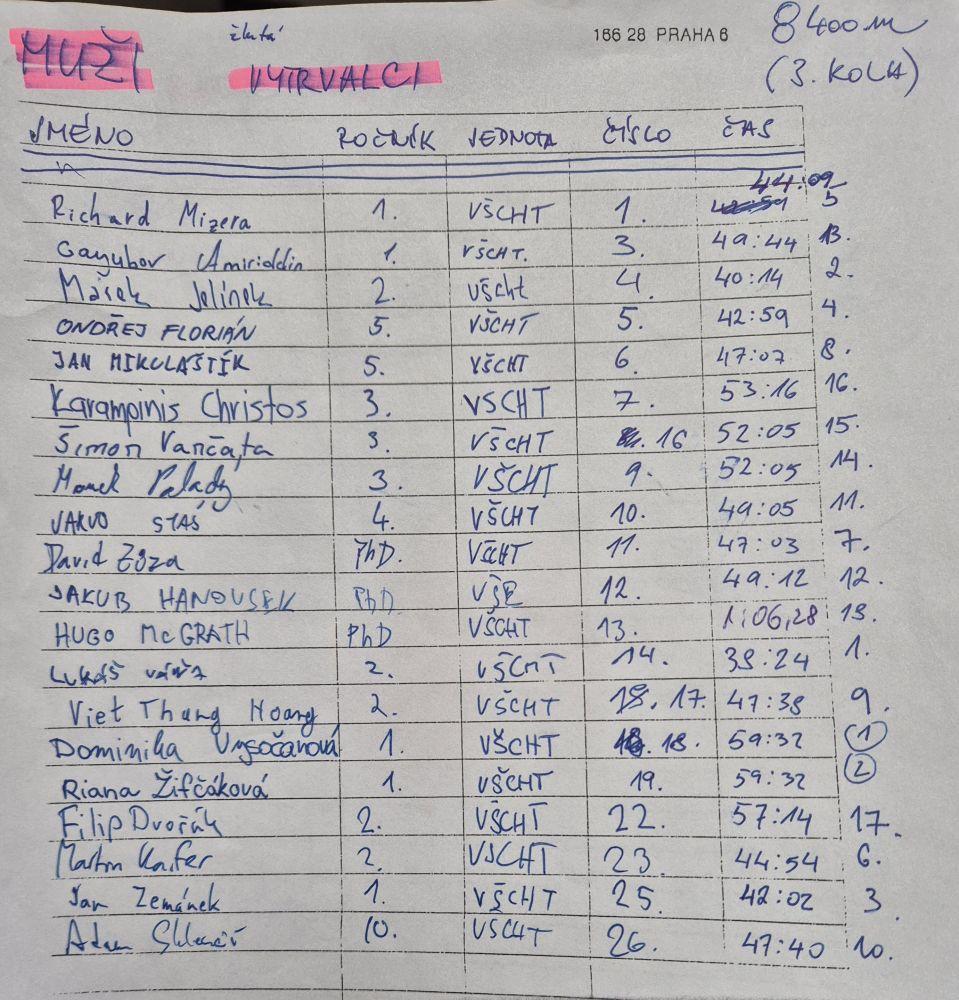 žlutá 166 28 PRAHA 6 8400m
MUŽI VYTRVALCI (3. KOLA)
JMÉNO ROČNÍK JEDNOTA ČÍSLO ČAS
44:09
Richard Mizera 1. VŠCHT 1. 42:59 5
Gayubov Amiriddin 1. VŠCHT. 3. 49:44 13.
Marek Jelínek 2. všcht 4. 40:14 2.
ONDŘEJ FLORIÁN 5. VŠCHT 5. 42:59 4.
JAN MIKULÁŠTÍK 5. VŠCHT 6. 47:07 8.
Karampinis Christos 3. VSCHT 7. 53:16 16.
Šimon Vančata 3. VŠCHT 16 52:05 15.
Marek Palady 3. VŠCHT 9. 52:05 14.
JAKUB STAŠ 4. VŠCHT 10. 49:05 11.
David PhD. VŠCHT 11. 47:03 7.
JAKUB HANOUSEK PhD VŠE 12. 49:12 12.
HUGO McGRATH PhD VŠCHT 13. 1:06,28 18.
LUKÁŠ 2. VŠCHT 14. 38:24 1.
Viet Thang Hoang 2. VŠCHT 17. 47:38 9.
Dominika Vysočanová 1. VŠCHT 18. 59:32 1
Riana Žifčáková 1. VŠCHT 19. 59:32 2
Filip Dvořák 2. VŠCHT 22. 57:14 17.
Martin Kafer 2. VŠCHT 23. 44:54 6.
Jan Zemánek 1. VŠCHT 25. 42:02 3.
Adam 10. VŠCHT 26. 47:40 10.